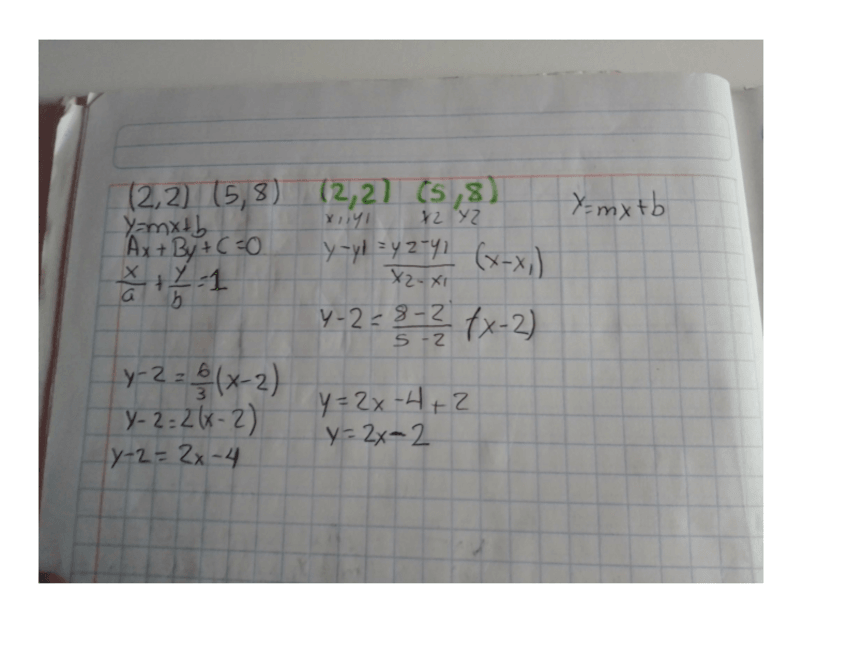 (2,2) (5,8)
y=mx+b
Ax+By+C=0
x/a + y/b = 1
(2,2) (5,8)
x1,y1 x2 y2
y-y1 = y2-y1/x2-x1 (x-x1)
y-2 = 8-2/5-2 (x-2)
y=mx+b
y-2 = 6/3 (x-2)
y-2=2(x-2)
y-2= 2x-4
y=2x-4+2
y=2x-2